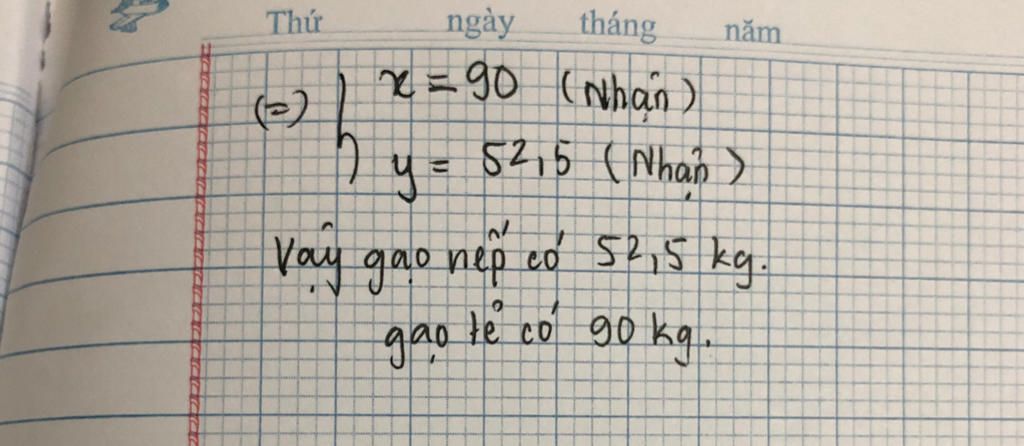 Thứ ngày tháng năm
(=) { x = 90 (Nhận)
y = 52,5 (Nhận)
Vậy gạo nếp có 52,5 kg.
gạo tẻ có 90 kg.